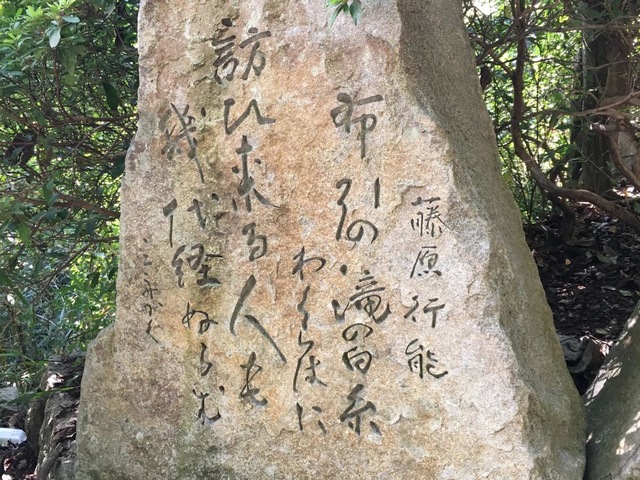 藤原行能
布引の滝の白糸
わくらはに
訪ひ来る人も
幾代経ぬらむ